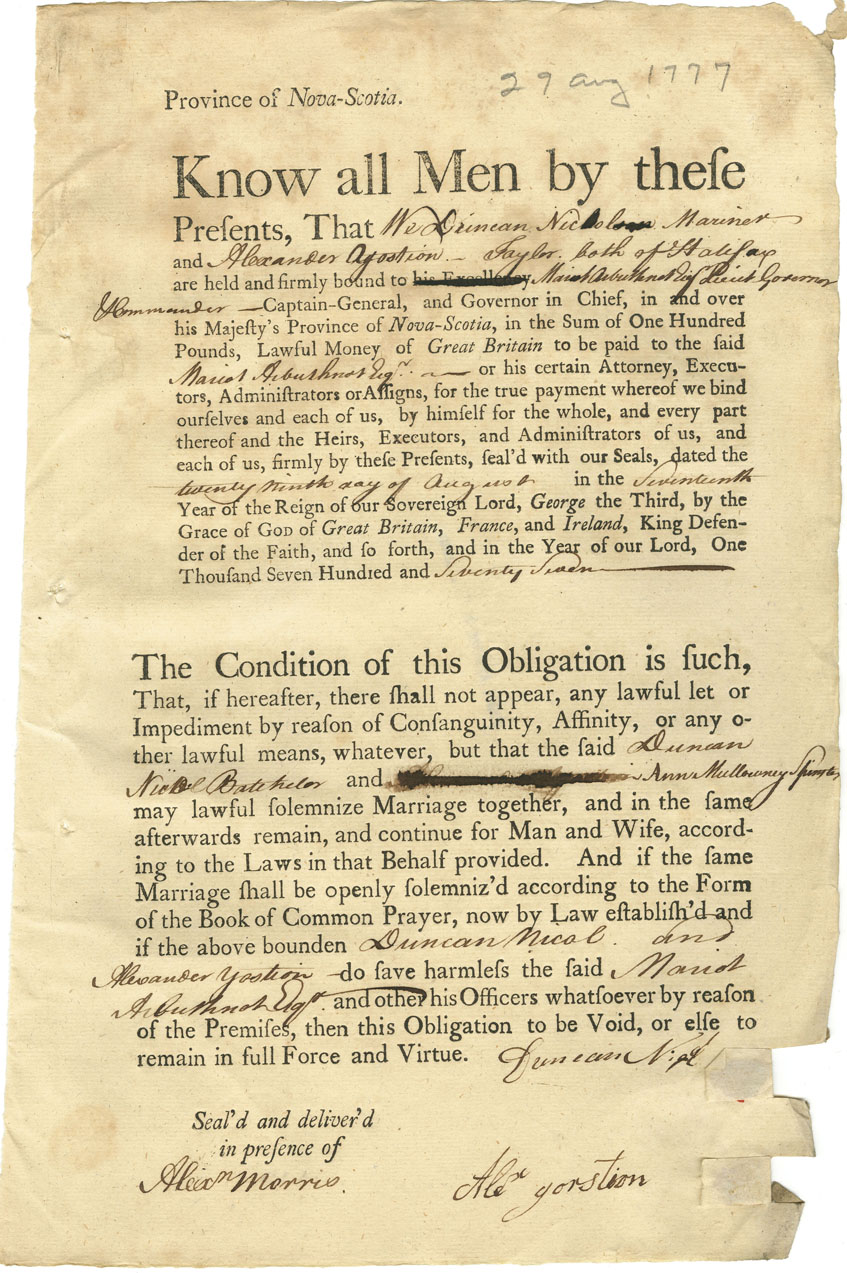 29 aug 1777
Province of Nova-Scotia.
Know all Men by theſe
Preſents, That We Duncan Nicholson Mariner
and Alexander Yostion — Taylor. both of Halifax
are held and firmly bound to his Excellency Mariot Arbuthnot Esqr Lieut Governor
& Commander — Captain-General, and Governor in Chief, in and over
his Majeſty's Province of Nova-Scotia, in the Sum of One Hundred
Pounds, Lawful Money of Great Britain to be paid to the ſaid
Mariot Arbuthnot Esqr. — or his certain Attorney, Execu-
tors, Adminiſtrators or Aſſigns, for the true payment whereof we bind
ourſelves and each of us, by himſelf for the whole, and every part
thereof and the Heirs, Executors, and Adminiſtrators of us, and
each of us, firmly by theſe Preſents, ſeal'd with our Seals, dated the
twenty ninth day of August in the Seventeenth
Year of the Reign of our Sovereign Lord, George the Third, by the
Grace of God of Great Britain, France, and Ireland, King Defen-
der of the Faith, and ſo forth, and in the Year of our Lord, One
Thouſand Seven Hundred and Seventy Seven
The Condition of this Obligation is ſuch,
That, if hereafter, there ſhall not appear, any lawful let or
Impediment by reaſon of Conſanguinity, Affinity, or any o-
ther lawful means, whatever, but that the ſaid Duncan
Nicol Batchelor and Ann Mullowney Spinster
may lawful ſolemnize Marriage together, and in the ſame
afterwards remain, and continue for Man and Wife, accord-
ing to the Laws in that Behalf provided. And if the ſame
Marriage ſhall be openly ſolemniz'd according to the Form
of the Book of Common Prayer, now by Law eſtabliſh'd and
if the above bounden Duncan Nicol. and
Alexander Yostion — do ſave harmleſs the ſaid Mariot
Arbuthnot Esqr. and other his Officers whatſoever by reaſon
of the Premiſes, then this Obligation to be Void, or elſe to
remain in full Force and Virtue. Duncan Nicol
Seal'd and deliver'd
in preſence of
Alexr Morris.
Alexr yorstion